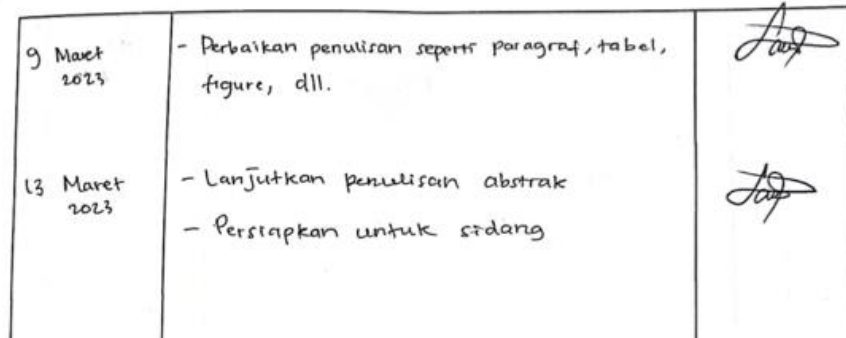 9 Maret
2023
- Perbaikan penulisan seperti paragraf, tabel,
figure, dll.
13 Maret
2023
- Lanjutkan penulisan abstrak
- Persiapkan untuk sidang